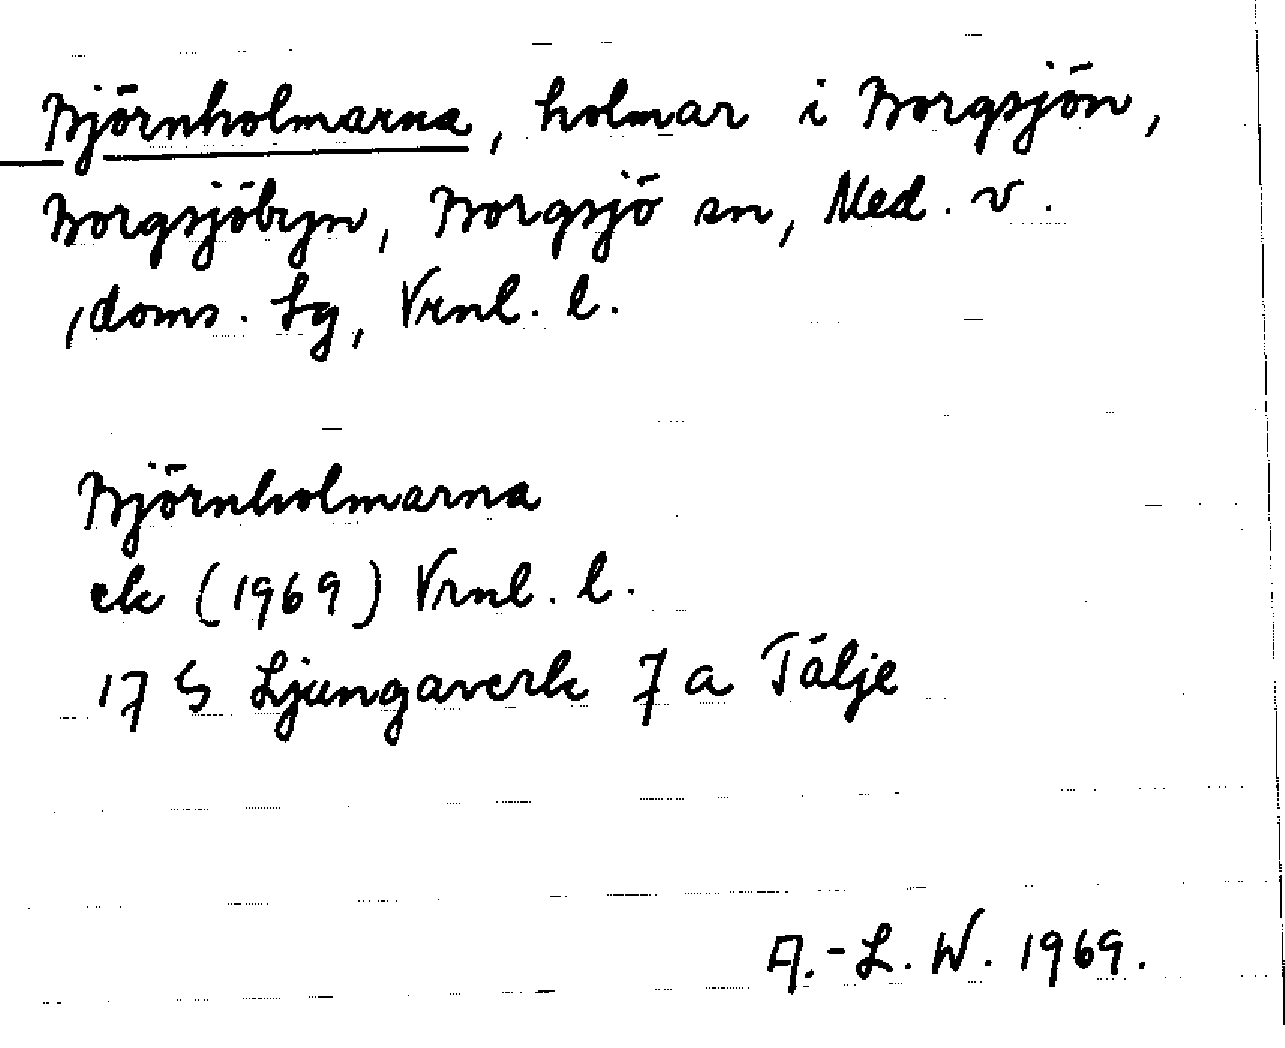 Björnholmarna, holmar i Borgsjön,
Borgsjöbyn, Borgsjö sn, Med. v.
, doms. Lg, Vrnl. l.
Björnholmarna
ek (1969) Vrnl. l.
17 G Ljungaverk 7 a Tälje
A.-L. W. 1969.